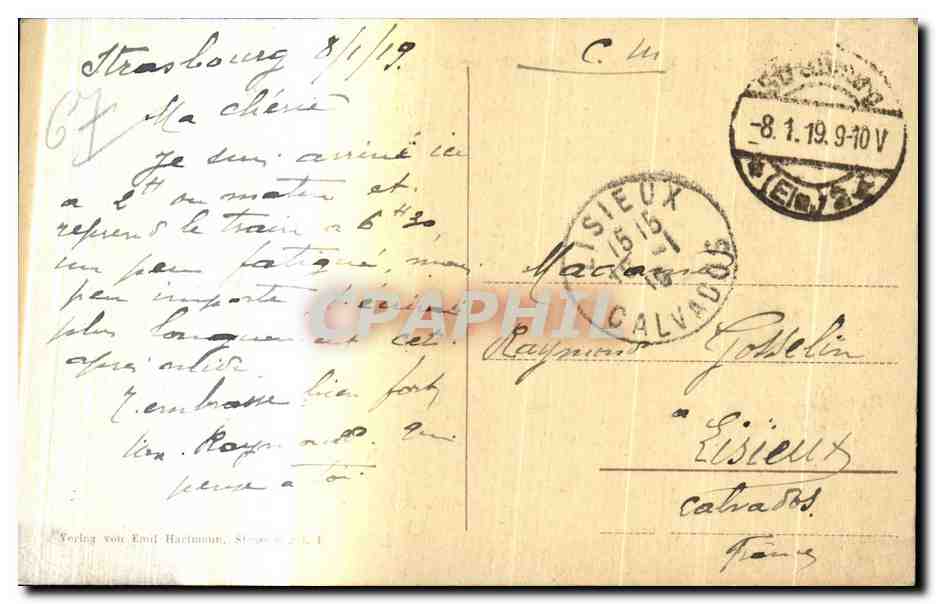 Strasbourg 8/1/19.
C. M
67
Ma chérie
Je suis arrivé ici
a 2H du matin et
reprend le train a 6H30
un peu fatigué, mais
peu importe j'écrirai
plus longuement cet
après midi
J'embrasse bien fort
ton Raymond qui
pense à toi
Verlag von Emil Hartmann,
-8.1.19.9-10V
(Els.)
LISIEUX
15 15
CALVADOS
Madame
Raymond Gosselin
a
Lisieux
Calvados.
France
CPAPHIL